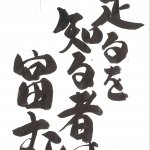 足るを
知る者は
富む